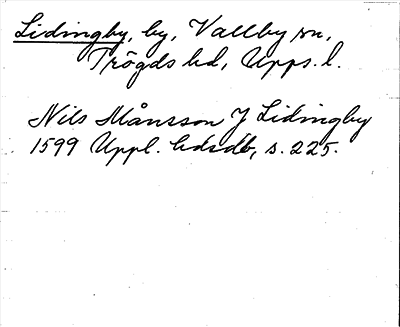 Lidingby, by, Vallby sn,
Trögds hd, Upps. l.
Nils Månsson J Lidingby
1599 Uppl. hdsdb, s. 225.